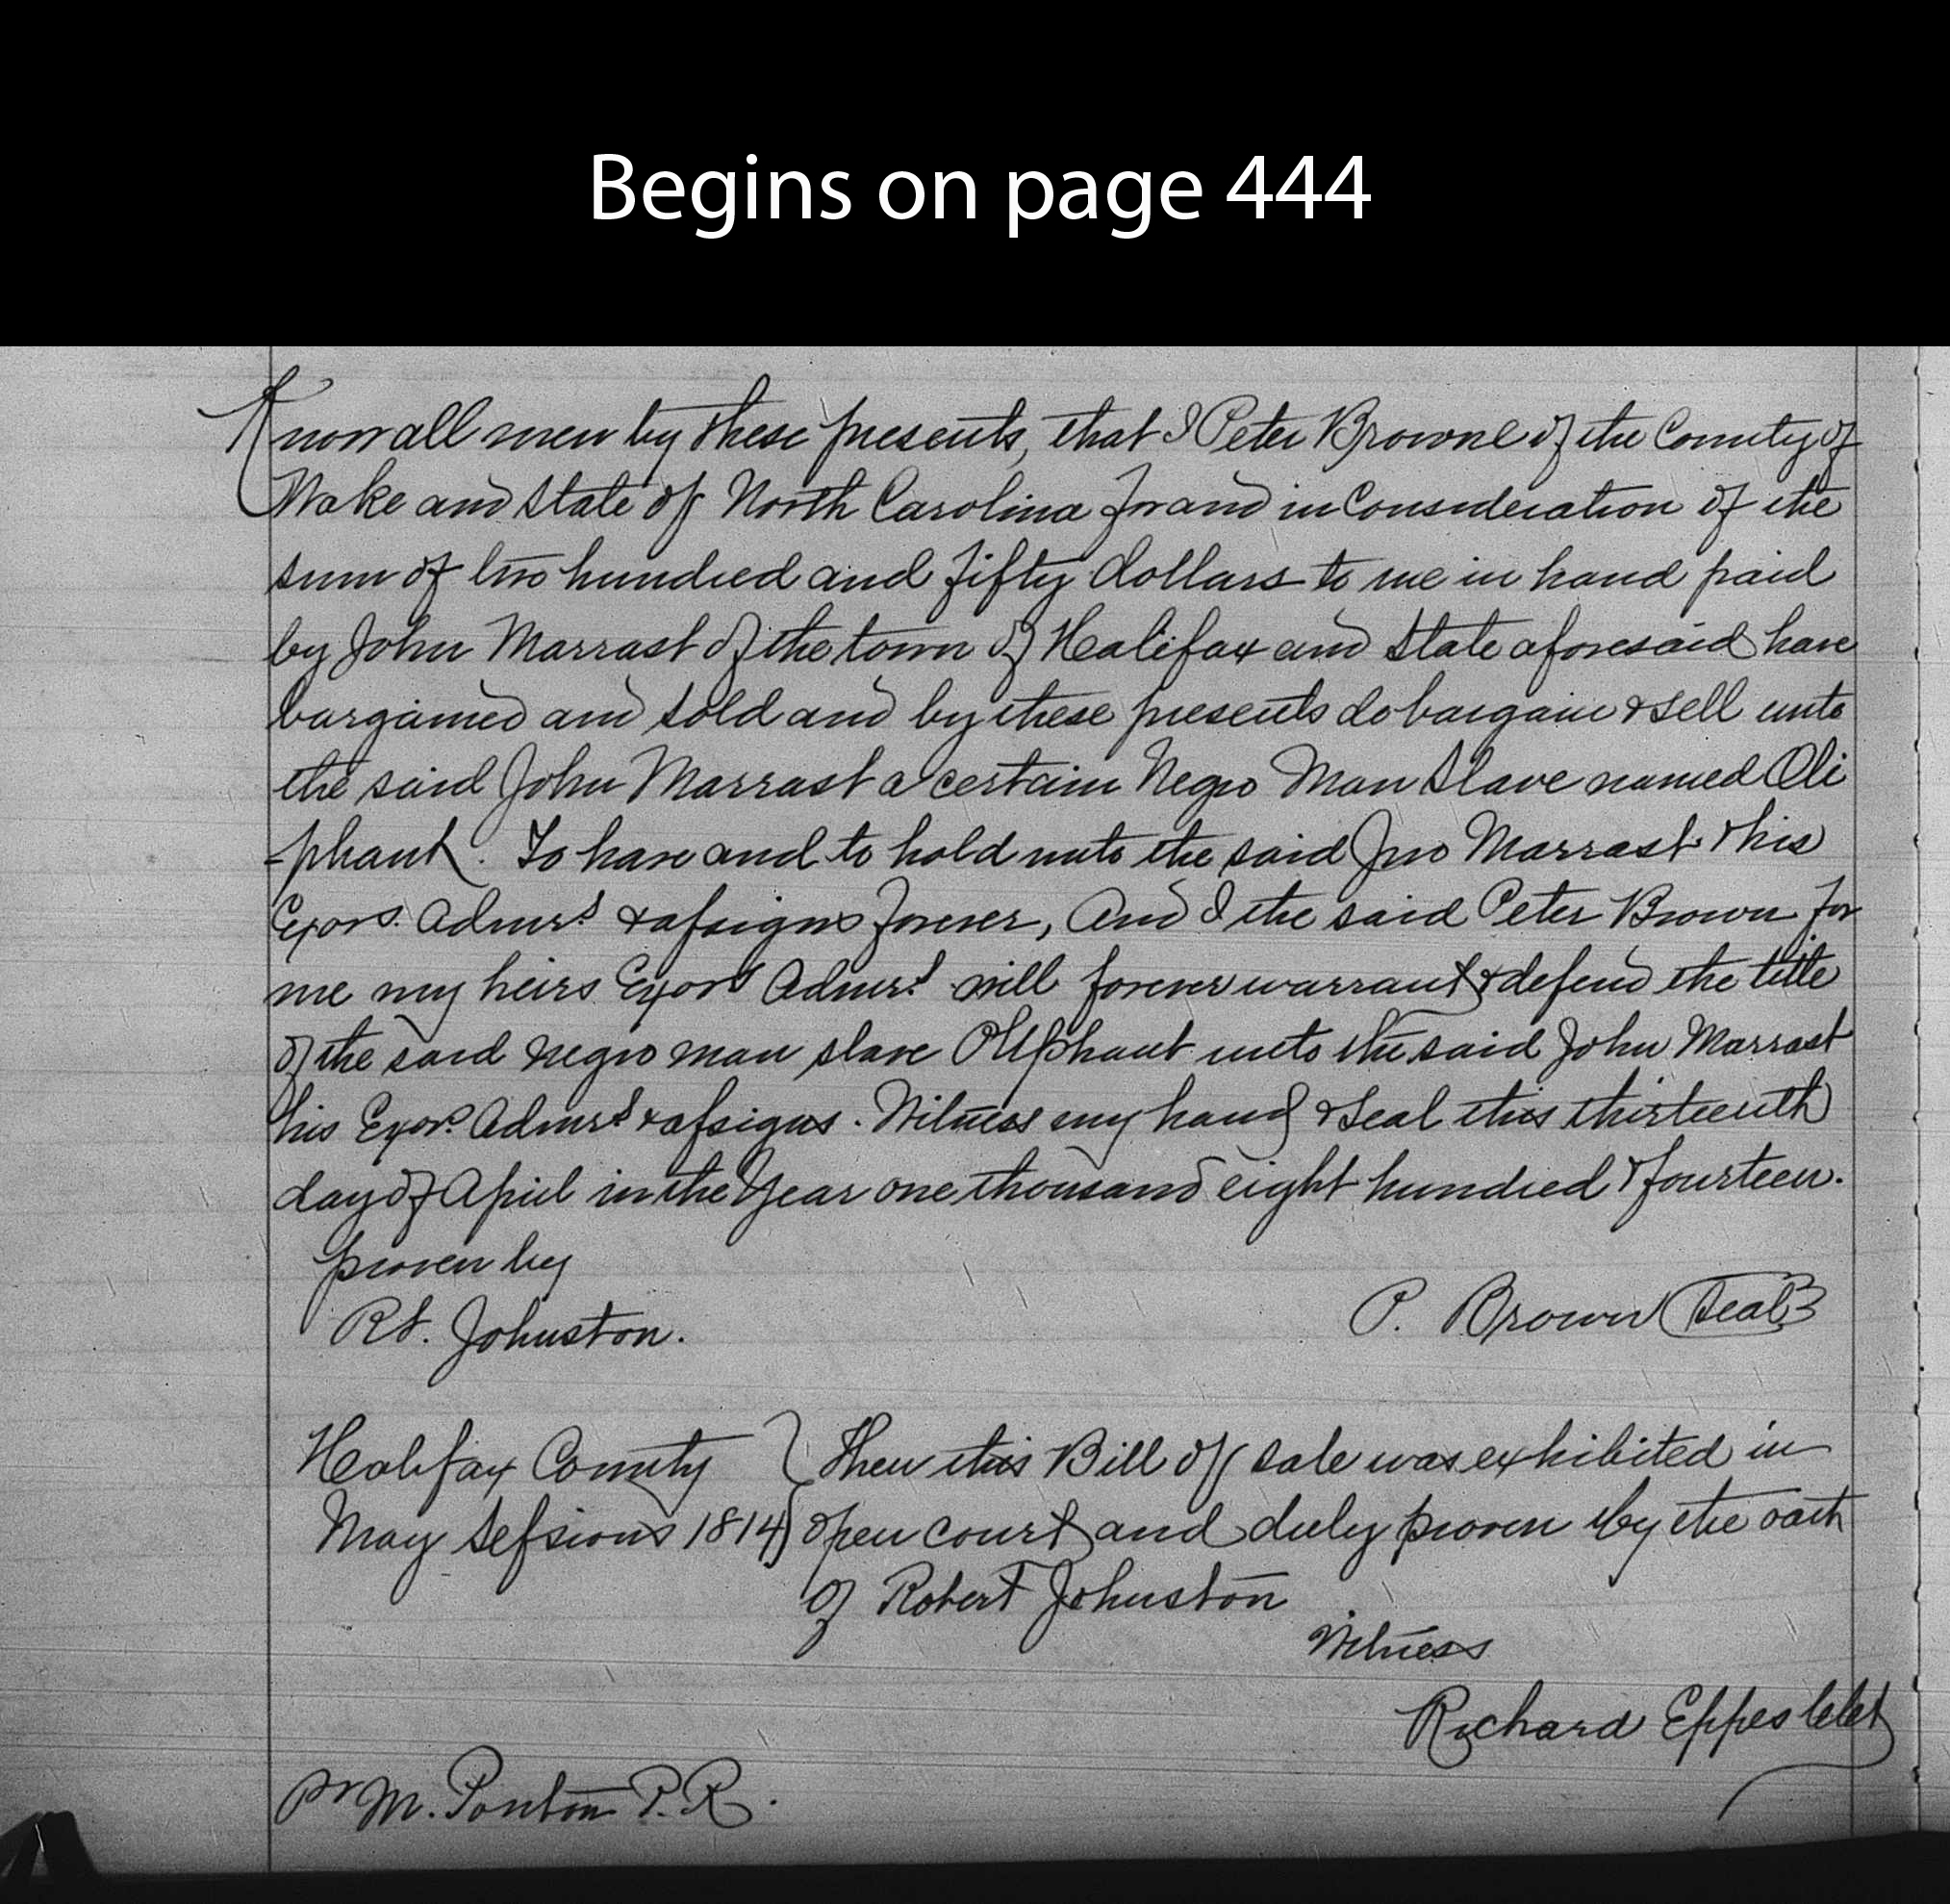 Begins on page 444
Know all men by these presents, that I Peter Browne of the County of
Wake and State of North Carolina for and in Consideration of the
sum of two hundred and fifty dollars to me in hand paid
by John Marrast of the town of Halifax and State aforesaid have
bargained and sold and by these presents do bargain & sell unto
the said John Marrast a certain Negro Man Slave named Oli
-phant. To have and to hold unto the said Jno Marrast & his
Exors. Admrs & assigns forever, And I the said Peter Brown for
me my heirs Exors Admrs will forever warrant & defend the title
of the said negro man slave Oliphant unto the said John Marrast
his Exors. Admrs & assigns. Witness my hand & Seal this thirteenth
day of April in the Year one thousand eight hundred & fourteen.
proven by
Rt. Johnston.
P. Brown Seal
Halifax County } Then this Bill of Sale was exhibited in
May Sessions 1814 } open court and duly proven by the oath
of Robert Johnston
Witness
Richard Eppes Clk
pr M. Ponton P.R.